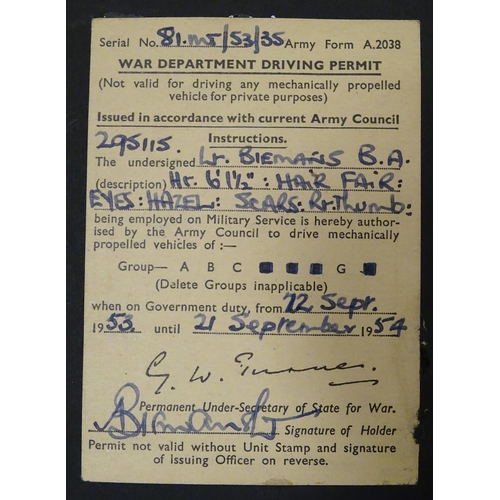 Serial No. 81.MT/53/35 Army Form A.2038
WAR DEPARTMENT DRIVING PERMIT
(Not valid for driving any mechanically propelled
vehicle for private purposes)
Issued in accordance with current Army Council
295115. Instructions.
The undersigned Lt. BIEMANS B.A.
(description) Ht. 6'1½": HAIR FAIR:
EYES: HAZEL: SCARS: Rt. Thumb:
being employed on Military Service is hereby author-
ised by the Army Council to drive mechanically
propelled vehicles of :—
Group— A B C G
(Delete Groups inapplicable)
when on Government duty, from 22 Sept.
1953. until 21 September 1954
G. W. Turner.
Permanent Under-Secretary of State for War.
Signature of Holder
Permit not valid without Unit Stamp and signature
of Issuing Officer on reverse.